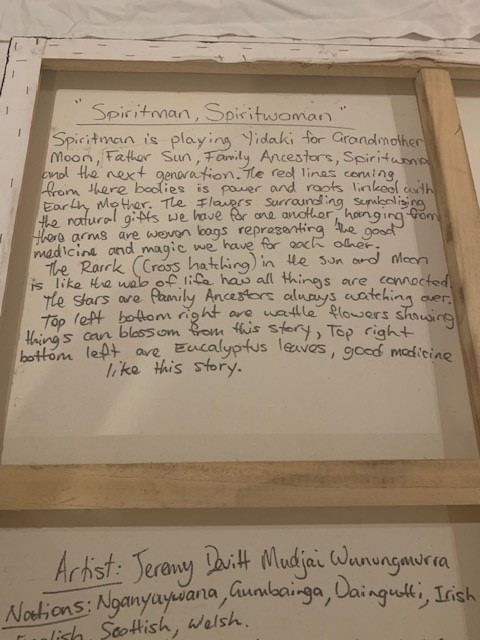 "Spiritman, Spiritwoman"
Spiritman is playing Yidaki for Grandmother
Moon, Father Sun, Family Ancestors, Spiritwoma
and the next generation. The red lines coming
from there bodies is power and roots linked with
Earth Mother. The Flowers surrounding symbolising
the natural gifts we have for one another, hanging from
there arms are woven bags representing the good
medicine and magic we have for each other.
The Rarrk (Cross hatching) in the Sun and Moon
is like the web of life how all things are connected.
The stars are family Ancestors always watching over.
Top left bottom right are wattle flowers showing
things can blossom from this story, Top right
bottom left are Eucalyptus leaves, good medicine
like this story.
Artist: Jeremy Devitt Mudjai Wunungmurra
Nations: Nganyaywana, Gumbainga, Daingutti, Irish
English, Scottish, Welsh.